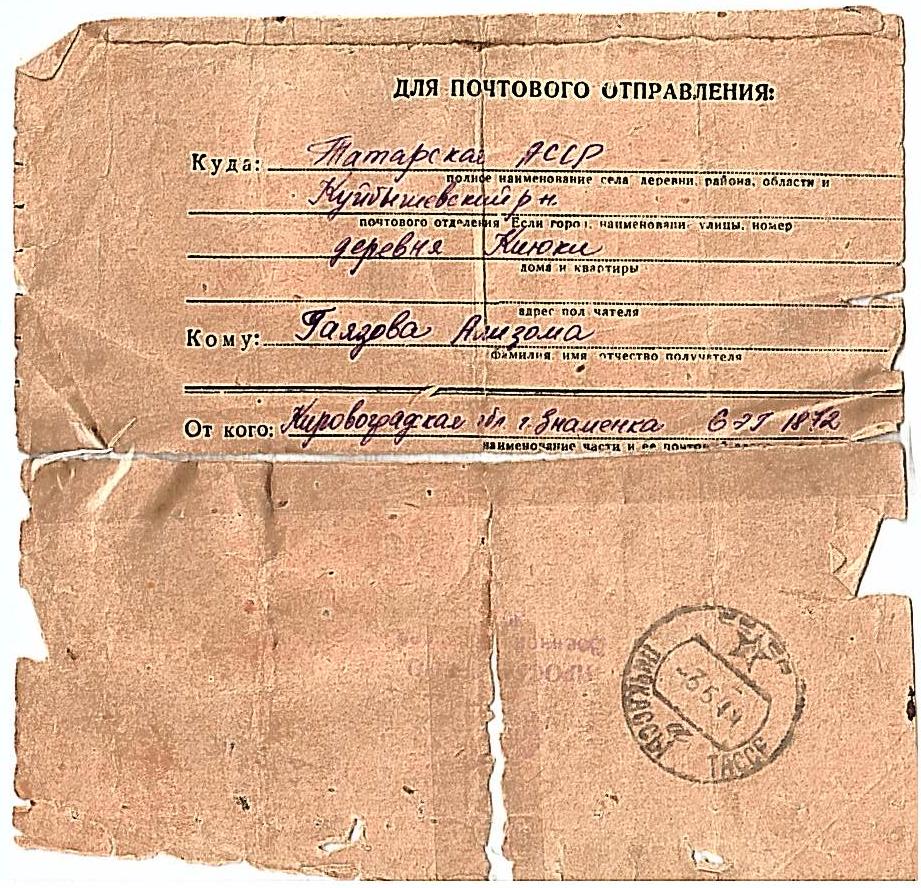 ДЛЯ ПОЧТОВОГО ОТПРАВЛЕНИЯ:
Куда: Татарская АССР
полное наименование села деревни, района, области и
Куйбышевский р н.
почтового отделения Если город, наименование улицы, номер
деревня Киюки
дома и квартиры
адрес пол чателя
Кому: Гаязова Ализома
фамилия имя отчество получателя
От кого: Кировоградкая обл г. Знаменка ЭГ 1872
наименование части и ее
СССР
-8.5.44
ТАССР